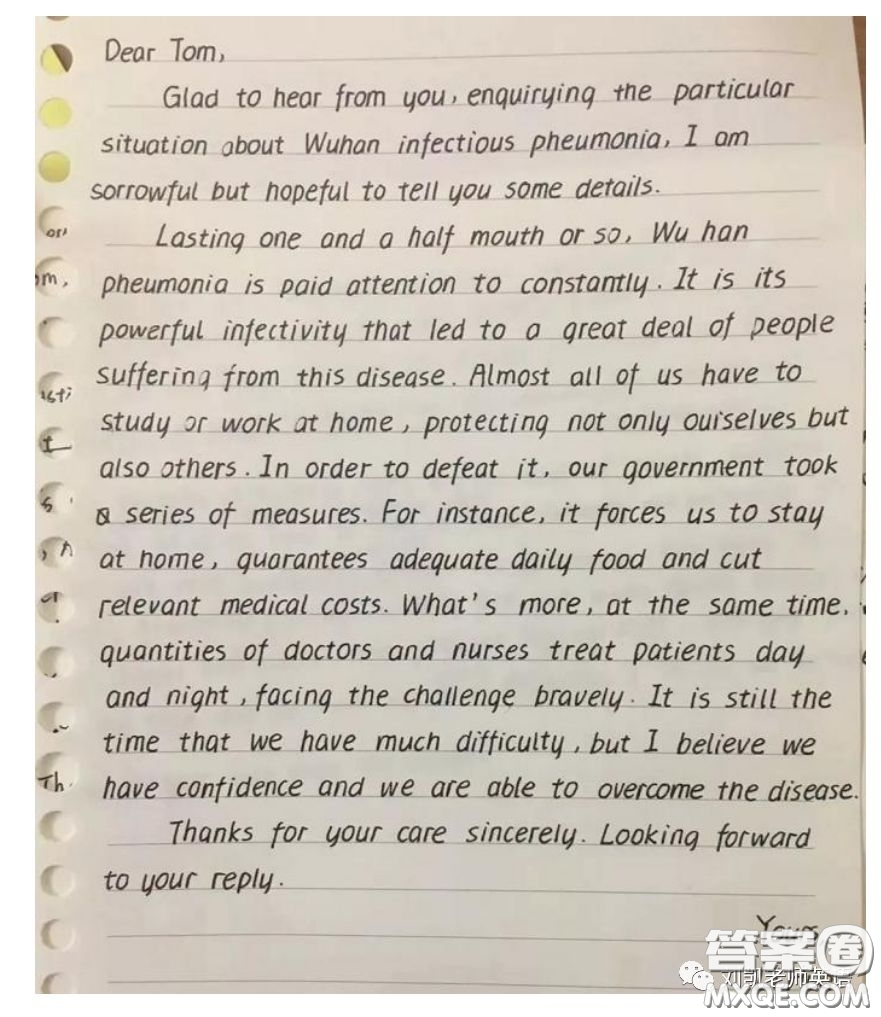 Dear Tom,
Glad to hear from you, enquirying the particular
situation about Wuhan infectious pheumonia, I am
sorrowful but hopeful to tell you some details.
or
Lasting one and a half mouth or so, Wu han
m,
pheumonia is paid attention to constantly. It is its
powerful infectivity that led to a great deal of people
suffering from this disease. Almost all of us have to
study or work at home, protecting not only ourselves but
also others. In order to defeat it, our government took
a series of measures. For instance, it forces us to stay
at home, guarantees adequate daily food and cut
relevant medical costs. What's more, at the same time,
quantities of doctors and nurses treat patients day
and night, facing the challenge bravely. It is still the
time that we have much difficulty, but I believe we
Th
have confidence and we are able to overcome the disease.
Thanks for your care sincerely. Looking forward
to your reply.
Yours
答案圈
刘凯老师英语
MXQE.COM